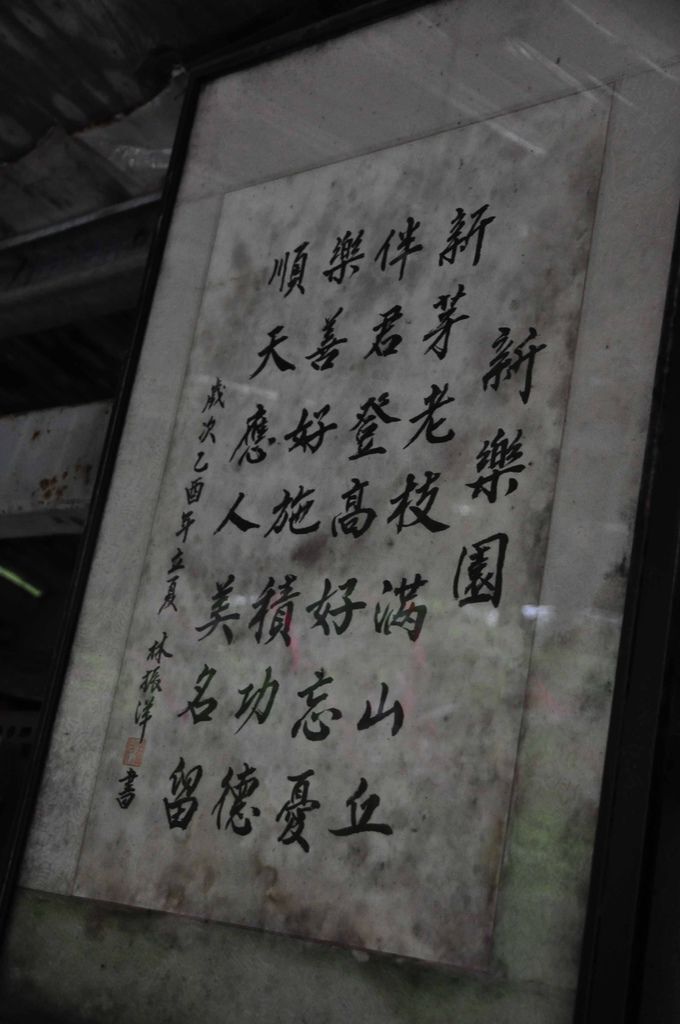 新樂園
新芽老枝满山丘
伴君登高好忘憂
樂善好施積功德
順天應人美名留
歲次乙酉年立夏 林振洋 書